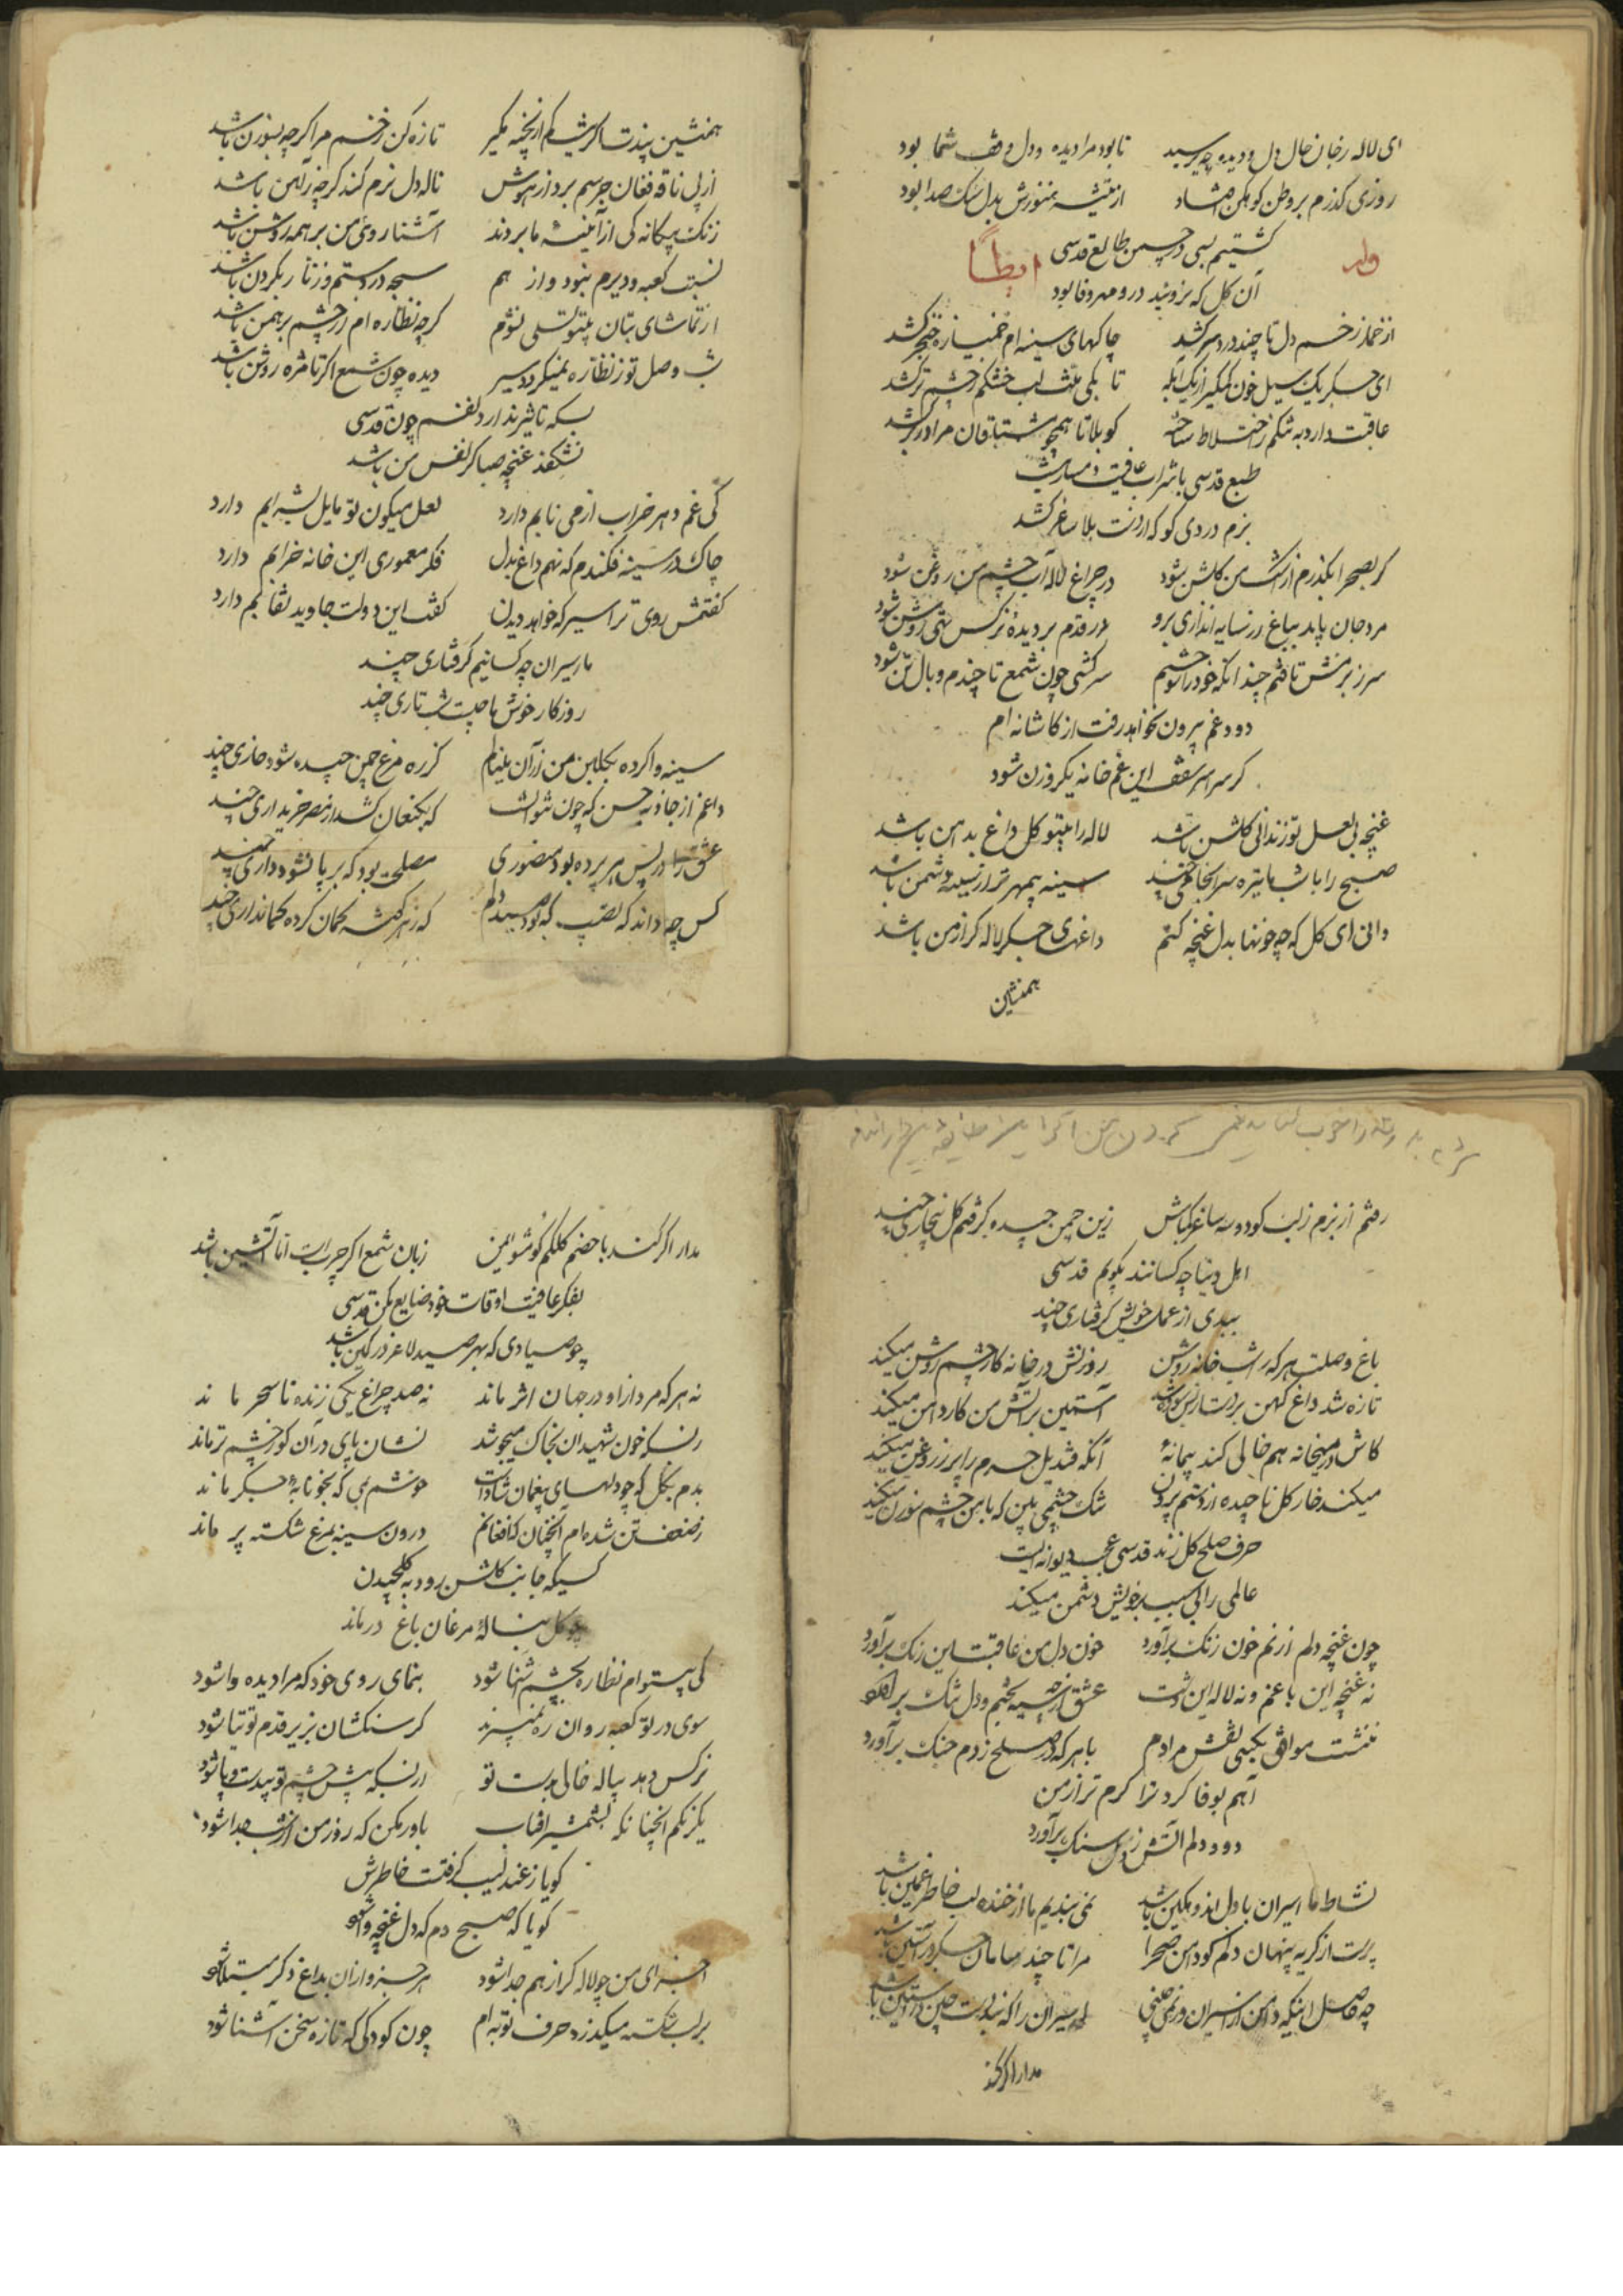 ای لاله رخان حال دل و دیده چه پرسید تا بود مرا دیده و دل وقف شما بود
روزی گذرم بر وطن کوهکن افتاد از تیشه هنوزش بدل سنگ صدا بود
گشتیم بسی در چمن طالع قدسی
وله ایضاً
آن گل که نروئید درو مهر و وفا بود
از خمار زخم دل تا چند درد سر کشد چاکهای سینه ام خمیازه خنجر کشد
ای جگر یک سیل خون کم گیر از یک آبله تا بکی منت لب خشکم ز چشم تر کشد
عافیت دارد به تنگم ز اختلاط ساخته کو بلا تا همچو مشتاقان مرا در بر کشد
طبع قدسی با شراب عافیت
بزم دردی کو که از دست بلا ساغر کشد
گر بصحرا بگذرم از اشک من گلشن شود در چراغ لاله آب چشم من روغن شود
مرد جان باید بباغ در سایه اندازی برو هر قدم بر دیده نرگس رهی روشن شود
سر ز برمش تافتم چندانکه خود را سوختم سرکشی چون شمع تا چندم وبال تن شود
دود غم بیرون نخواهد رفت از کاشانه ام
گر سراسر سقف این غم خانه یک روزن شود
غنچه بی لعل تو زندانی گلشن باشد لاله را بیتو گل داغ بدامن باشد
صبح را با شب ما تیره سرانجامی چند سینه بیمهرتر از سینه دشمن باشد
دانی ای گل که چه خونها بدل غنچه کنم داغهای جگر لاله گر از من باشد
همنشین
همنشین پند تسا گریه کم از بخیه مگیر تازه کن زخم مرا گرچه بسوزن باشد
از پی ناقه فغان جرسم برد از هوش ناله دل نرم کند گرچه ز آهن باشد
زنگ بیگانه گی از آینه ما بردند آشنا روئی من بر همه روشن باشد
نسبت کعبه و دیرم نبود واز هم سبحه در دستم و زنار بگردن باشد
از تماشای بتان بیتو تسلی نشوم گرچه نظاره ام از چشم برهمن باشد
شب وصل تو ز نظاره نمیگردد سیر دیده چون شمع اگر تا مژه روشن باشد
بسکه تاثیر ندارد نفسم چون قدسی
نشکفد غنچه صبا گر نفس من باشد
کی غم دهر خراب از می نابم دارد لعل میگون تو مایل بشرابم دارد
چاک در سینه فکندم که نهم داغ بدل فکر معموری این خانه خرابم دارد
گفتمش روی ترا سیر که خواهد دیدن گفت این دولت جاوید نقابم دارد
ما اسیران چه کسانیم گرفتاری چند
روزگار خوش ما چیست شب تاری چند
سینه وا کرده بگلبن من زار آن بلبلم کز ره مرغ چمن چیده شود خاری چند
داغم از جاذبه حسن که چون نتوانست که بکنعان کشد از مصر خریداری چند
عشق را در پس هر پرده بود منصوری مصلحت بود که بر پا نشود داری چند
کس چه داند که نصیب که بود صید دلم که ز هر گوشه کمان کرده کمانداری چند
رفتم از بزم ز لب گو دو سه ساغر کم باش زین چمن چیده گرفتم گل بیخاری چند
اهل دنیا چه کسانند بگویم قدسی
بیدی از عمل خویش گرفتاری چند
باغ وصلت هر که را شب خانه روشن میکند روزنش در خانه کار چشم روشن میکند
تازه شد داغ کهن بر دست از بس سوده شد آستین بر آتش من کار دامن میکند
کاش در میخانه هم خالی کند پیمانه آنکه قندیل حرم را پر ز روغن میکند
میکند خار گل ناچیده از دستم برون تنگ چشمی بین که با من چشم سوزن میکند
حرف صلح کل زند قدسی عجب دیوانه ایست
عالمی را بی سبب با خویش دشمن میکند
چون غنچه دلم از نم خون زنگ برآورد خون دل من عاقبت این رنگ برآورد
نه غنچه این باغم و نه لاله این دشت عشق از چه سیه بختم و دل تنگ برآورد
ننشست موافق بکسی نقش مرادم با هر که در صلح زدم جنگ برآورد
آهم بوفا کرد ترا گرم تر از من
دود دلم آتش ز دل سنگ برآورد
نشاط ما اسیران با دل اندوهگین باشد نمی بندیم ما از خنده لب خاطر غمگین باشد
پرست از گریه پنهان دلم کو دامن صحرا مرا تا چند سامان جگر در آستین باشد
چه حاصل اینکه دامن از اسیران در نمی چینی اسیران را که نبود دست چین در آستین باشد
مدارا گر کند
مدارا گر کند با خصم کلکم گو مشو ایمن زبان شمع اگر چرب است اما آتشین باشد
بفکر عافیت اوقات خود ضایع مکن قدسی
چو صیادی که بهر صید لاغر در کمین باشد
نه هر که مرد ازو در جهان اثر ماند نه صد چراغ یکی زنده تا سحر ماند
ز بسکه خون شهیدان بخاک میجوشد نشان پای در آن کو ز چشم تر ماند
بدم بگل که چو دلهای بیغمان شادست خوشم بمی که بخونابه جگر ماند
ز ضعف تن شده ام آنچنان که افغانم درون سینه بمرغ شکسته پر ماند
کسیکه جانب گلشن رود به گلچیدن
چو گل بناله مرغان باغ درماند
کی بیتوام نظاره بچشم آشنا شود بنمای روی خود که مرا دیده وا شود
سوی در تو کعبه روان ره نمیبرند گر سنگشان بزیر قدم توتیا شود
نرگس دهد پیاله خالی بدست تو از بسکه پیش چشم تو بیدست و پا شود
یکرنگم آنچنانکه بشمشیر آفتاب باور مکن که روز من از شب جدا شود
گویا ز عندلیب گرفتست خاطرش
گویا که صبح دم که دل غنچه وا شود
اجزای من چو لاله گر از هم جدا شود هر جزو از آن بداغ دگر مبتلا شود
بر لب شکسته میگذرد حرف توبه ام چون کودکی که تازه سخن آشنا شود